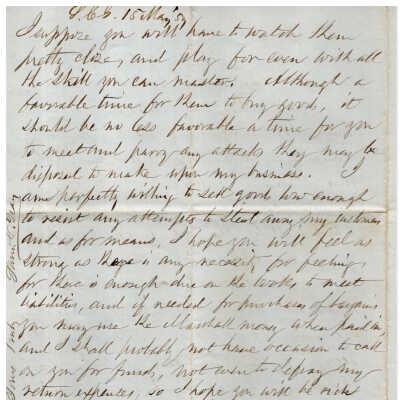 15 May
I suppose you will have to watch them
pretty close, and play for even with all
the skill you can master. Although a
favorable time for them to buy goods, it
should be no less favorable a time for you
to meet and parry any attacks they may be
disposed to make upon my business. I
am perfectly willing to sell goods low enough
to resist any attempts to steal away my customers
and as for means, I hope you will feel as
strong as there is any necessity for feeling,
for there is enough due on the books to meet
liabilities, and if needed for purchases of bargains,
you may use the Marshall money, when paid in,
and I shall probably not have occasion to call
on you for funds, not even to defray my
return expenses, so I hope you will be rich